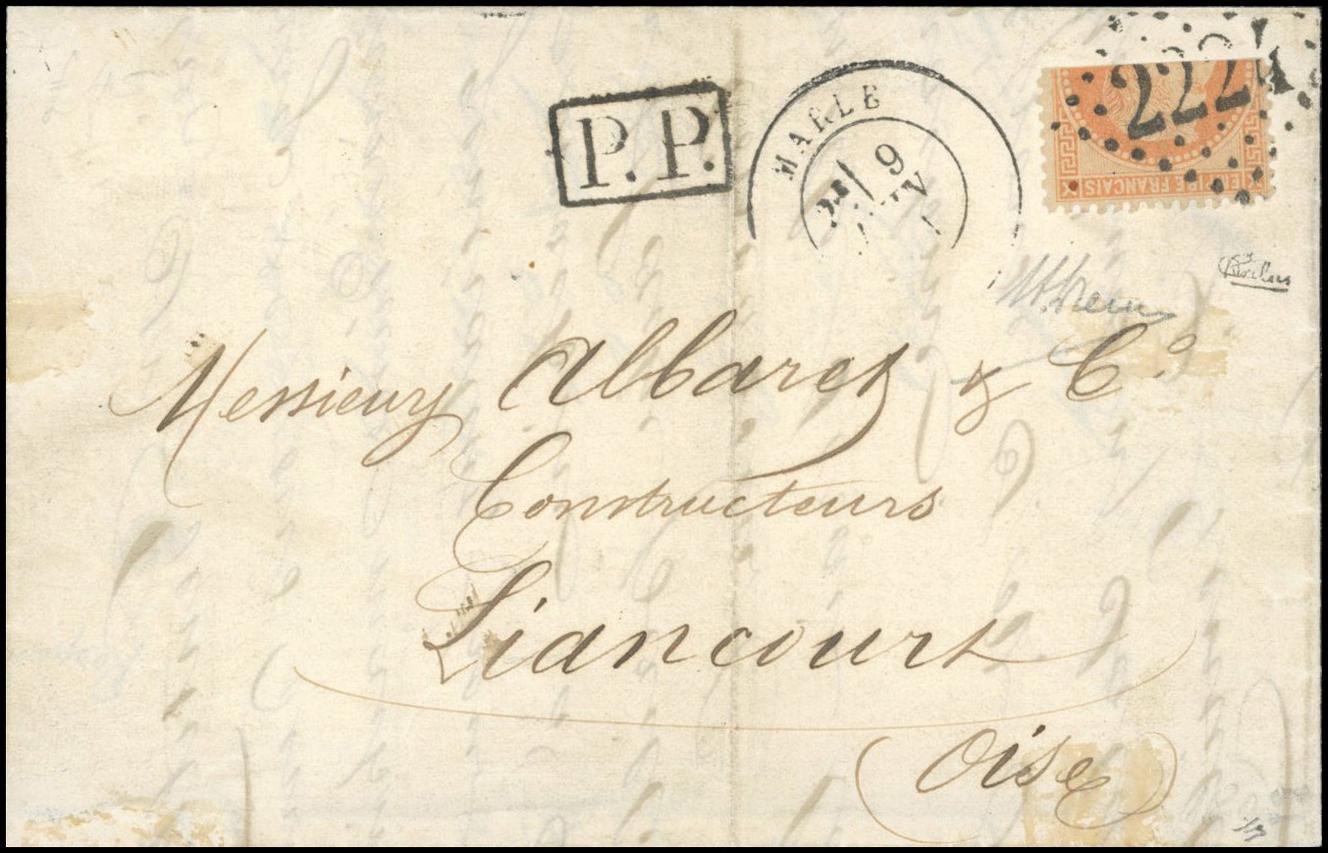 2224
P.P.
MARLE
9
EMPIRE FRANÇAIS
Messieurs Albaret & Cº
Constructeurs
Liancourt
Oise